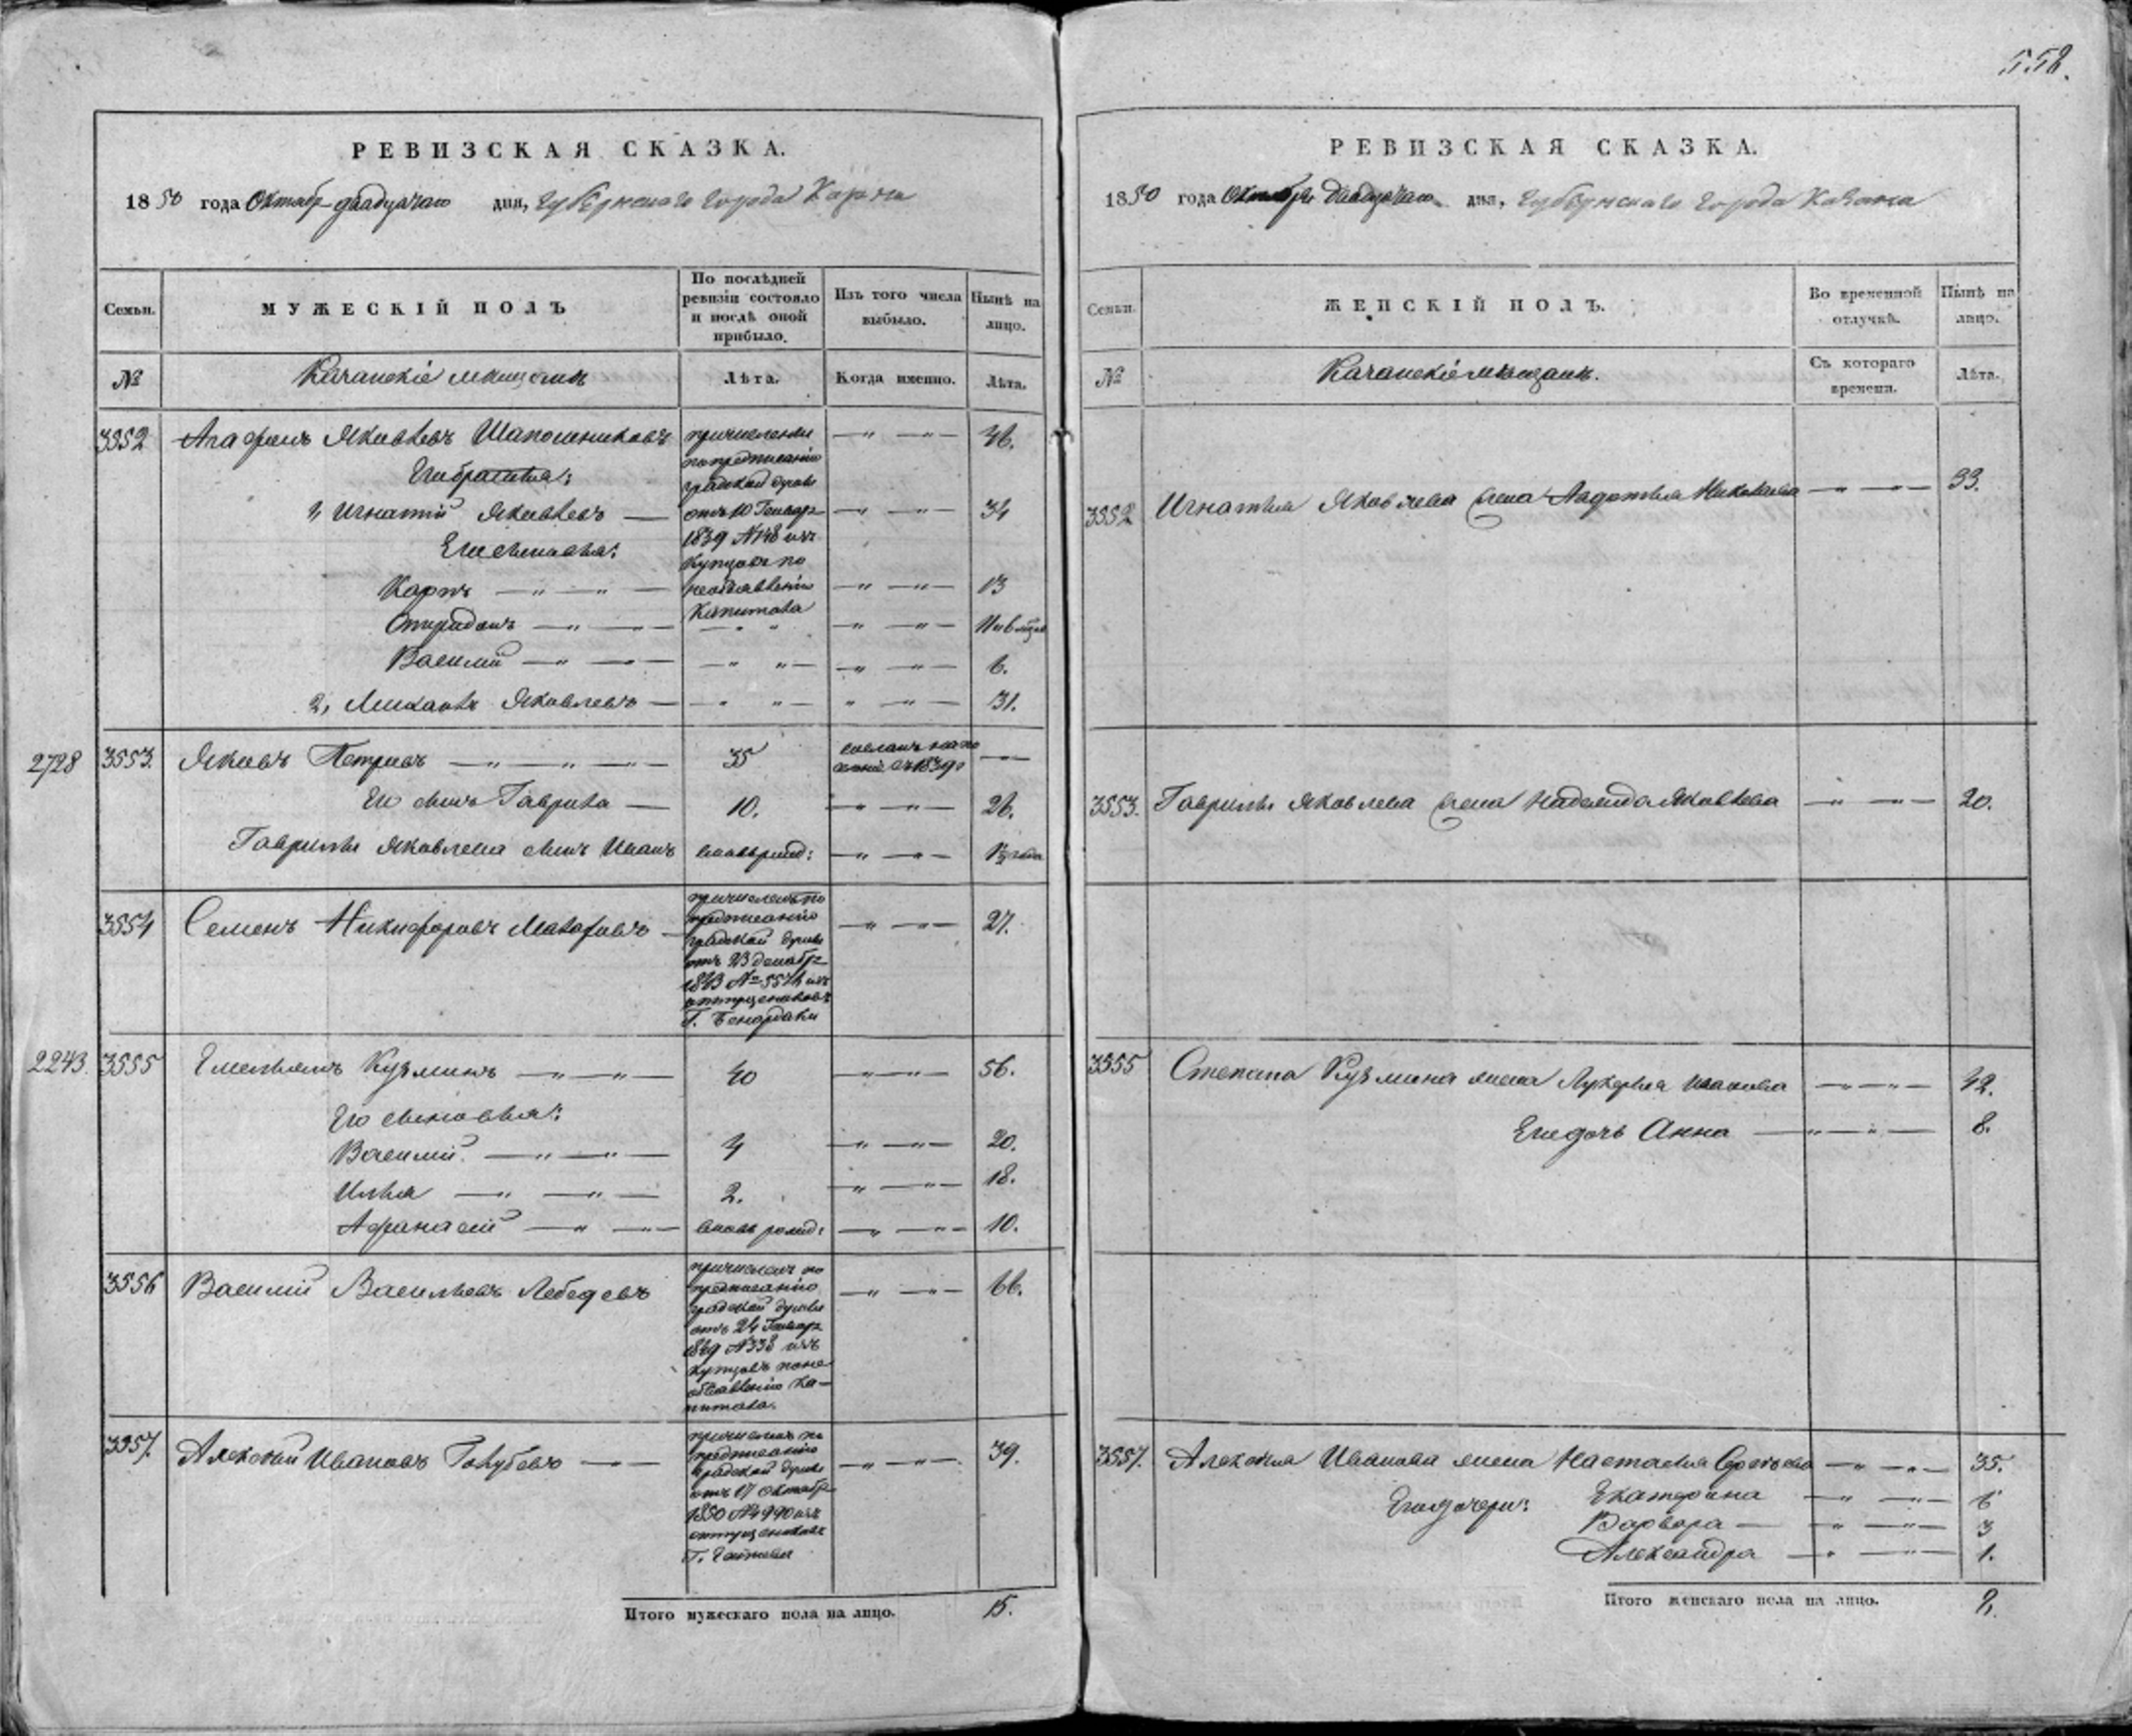 558.
РЕВИЗСКАЯ СКАЗКА.
1850 года Октября двадцатаго дня, Губернскаго города Казани
Семьи. МУЖЕСКІЙ ПОЛЪ По послѣдней ревизіи состояло и послѣ оной прибыло. Изъ того числа выбыло. Нынѣ на лицо.
№ Казанскіе мѣщане Лѣта. Когда именно. Лѣта.
3552 Агафонъ Яковлевъ Шапошниковъ причислены по предписанію градской думы отъ 10 Генваря 1839 № 148 изъ купцовъ по необъявленію капитала — „ — „ — 46.
Его братья:
1, Игнатій Яковлевъ — — „ — „ — 34
Его сыновья:
Карпъ — „ — „ — — „ — „ — 13
Спиридонъ — „ — „ — — „ „ — — „ — „ — 11 мѣсяц
Василій — „ — „ — — „ „ — — „ — „ — 6.
2, Михаилъ Яковлевъ — — „ „ — „ — „ — 31.
2728 3553. Яковъ Петровъ — „ — „ — „ — 35 сосланъ на по селеніе въ 1839 г —
Его сынъ Гаврила — 10. — „ — „ — 26.
Гаврилы Яковлева сынъ Иванъ вновь рожд: — „ — „ — 1/2 года
3554 Семенъ Никифоровъ Макаровъ — причисленъ по предписанію градской думы отъ 23 декабря 1843 № 5574 изъ отпущениковъ Г. Бенардаки — „ — „ — 27.
2243. 3555 Емельянъ Кузминъ — „ — „ — 40 — „ — „ — 56.
Его сыновья:
Василій. — „ — „ — 4 — „ — „ — 20.
Илья — „ — „ — 2. — „ — „ — 18.
Афанасій — „ — „ — вновь рожд: — „ — „ — 10.
3556 Василій Васильевъ Лебедевъ причисленъ по предписанію градской думы отъ 24 Генваря 1849 № 338 изъ купцовъ по не объявленію ка- питала. — „ — „ — 66.
3557. Алексѣй Ивановъ Голубевъ — „ — причисленъ по предписанію градской думы отъ 17 октября 1850 № 4990 изъ отпущениковъ Г. — „ — „ — 39.
Итого мужескаго пола на лицо. 15.
РЕВИЗСКАЯ СКАЗКА.
1850 года Октября двадцатаго дня, Губернскаго города Казани
Семьи. ЖЕНСКІЙ ПОЛЪ. Во временной отлучкѣ. Нынѣ на лицо.
№ Казанскіе мѣщане. Съ котораго времени. Лѣта.
3552 Игнатья Яковлева жена Авдотья Николаева — „ — „ — 33.
3553. Гаврилы Яковлева жена Надежда Яковлева — „ — „ — 20.
3555 Степана Кузмина жена Лукерья Иванова — „ — „ — 42.
Его дочь Анна — „ — „ — 8.
3557. Алексѣя Иванова жена Настасья Сергѣева — „ — „ — 35.
Его дочери: Екатерина — „ — „ — 6
Варвара — „ — „ — 3
Александра — „ — „ — 1.
Итого женскаго пола на лицо. 8.